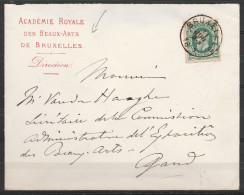 ACADÉMIE ROYALE
DES BEAUX-ARTS
DE BRUXELLES
Direction
Monsieur
Mr Vander Haeghe
de la Commission
administrative de l'Exposition
des Beaux-Arts
Gand